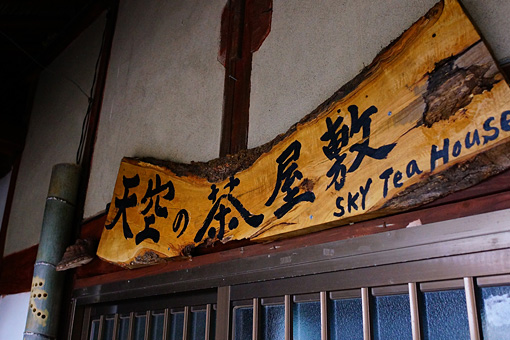 天空の茶屋敷
SKY Tea HOUSE